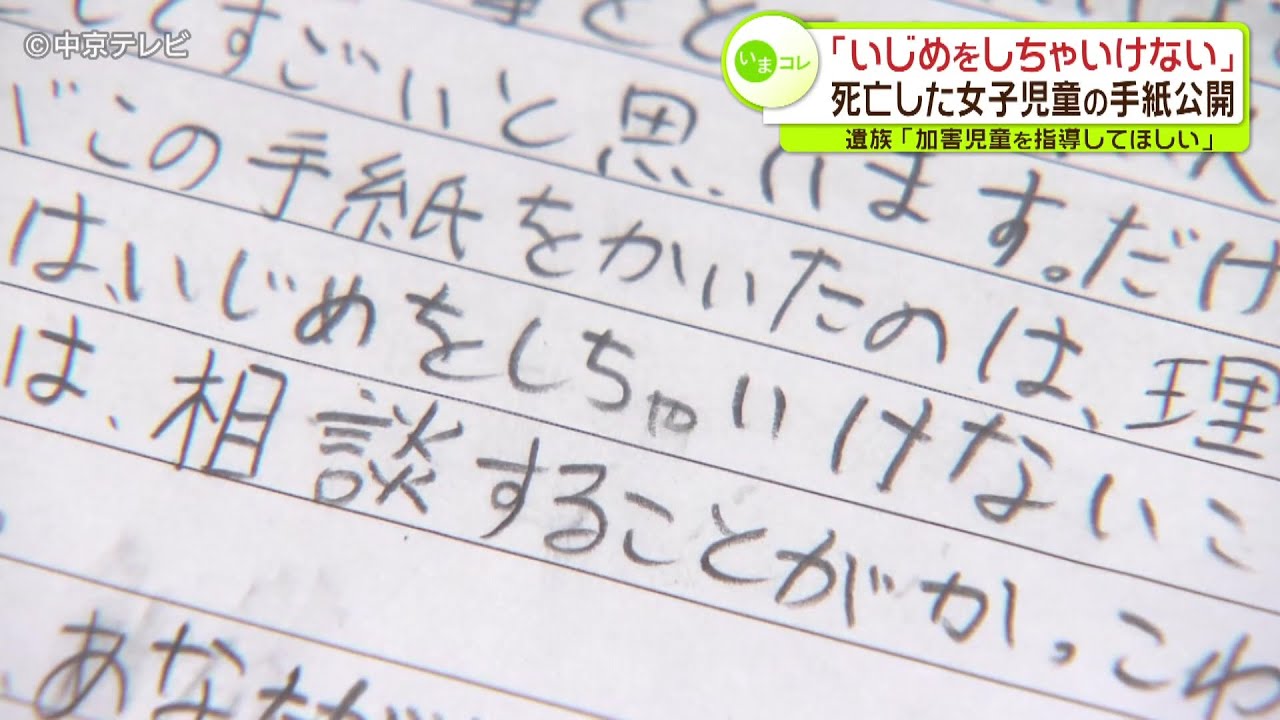 ©中京テレビ
いまコレ
「いじめをしちゃいけない」
死亡した女子児童の手紙公開
遺族「加害児童を指導してほしい」
すごいと思います。だけ
この手紙をかいたのは、理
は、いじめをしちゃいけないこ
は、相談することがか、こわ
あなたが